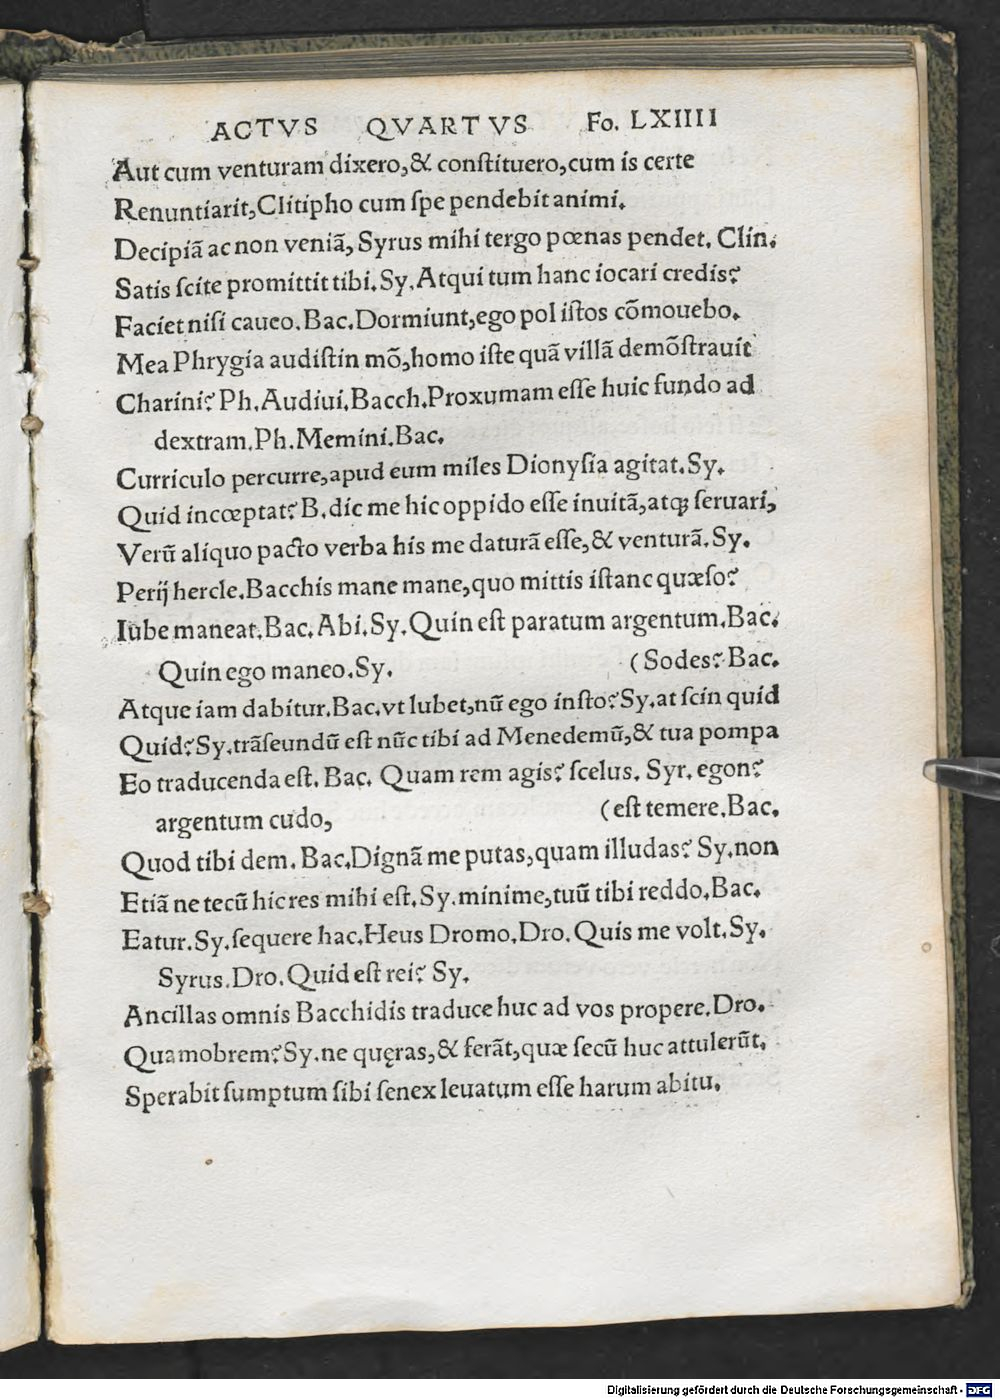 ACTVS QVARTVS Fo. LXIIII
Aut cum venturam dixero,& conſtituero,cum is certe
Renuntiarit,Clitipho cum ſpe pendebit animi.
Decipiā ac non veniā, Syrus mihi tergo pœnas pendet. Clin.
Satis ſcite promittit tibi.Sy.Atqui tum hanc iocari credis?
Faciet niſi caueo.Bac.Dormiunt,ego pol iſtos cōmouebo.
Mea Phrygia audiſtin mō,homo iſte quā villā demōſtrauit
Charini? Ph.Audiui.Bacch.Proxumam eſſe huic fundo ad
dextram.Ph.Memini.Bac.
Curriculo percurre,apud eum miles Dionyſia agitat.Sy.
Quid incœptat? B.dic me hic oppido eſſe inuitā,atqꝫ ſeruari,
Verū aliquo pacto verba his me daturā eſſe,& venturā.Sy.
Perij hercle.Bacchis mane mane,quo mittis iſtanc quæſo?
Iube maneat.Bac.Abi.Sy.Quin eſt paratum argentum.Bac.
Quin ego maneo.Sy. (Sodes? Bac.
Atque iam dabitur.Bac.vt lubet,nū ego inſto? Sy.at ſcin quid
Quid? Sy.trāſeundū eſt nūc tibi ad Menedemū,& tua pompa
Eo traducenda eſt. Bac. Quam rem agis? ſcelus. Syr. egon?
argentum cudo, (eſt temere.Bac.
Quod tibi dem. Bac.Dignā me putas,quam illudas? Sy.non
Etiā ne tecū hic res mihi eſt.Sy.minime,tuū tibi reddo.Bac.
Eatur.Sy.ſequere hac.Heus Dromo.Dro.Quis me volt.Sy.
Syrus.Dro.Quid eſt rei? Sy.
Ancillas omnis Bacchidis traduce huc ad vos propere.Dro.
Quamobrem? Sy.ne quęras,& ferāt,quæ ſecū huc attulerūt.
Sperabit ſumptum ſibi ſenex leuatum eſſe harum abitu.
Digitalisierung gefördert durch die Deutsche Forschungsgemeinschaft - DFG